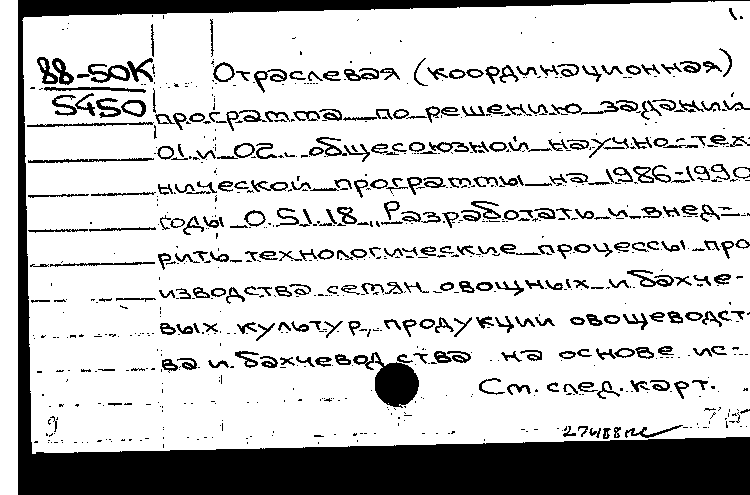 1.
88-50К Отраслевая (координационная)
5450 программа по решению заданий
01 и 02 общесоюзной научно-тех
нической программы на 1986-1990
годы О.51.18 „Разработать и внед-
рить технологические процессы про
изводства семян овощных и бахче-
вых культур, продукции овощеводст
ва и бахчеводства на основе ис-
См. след. карт.
9